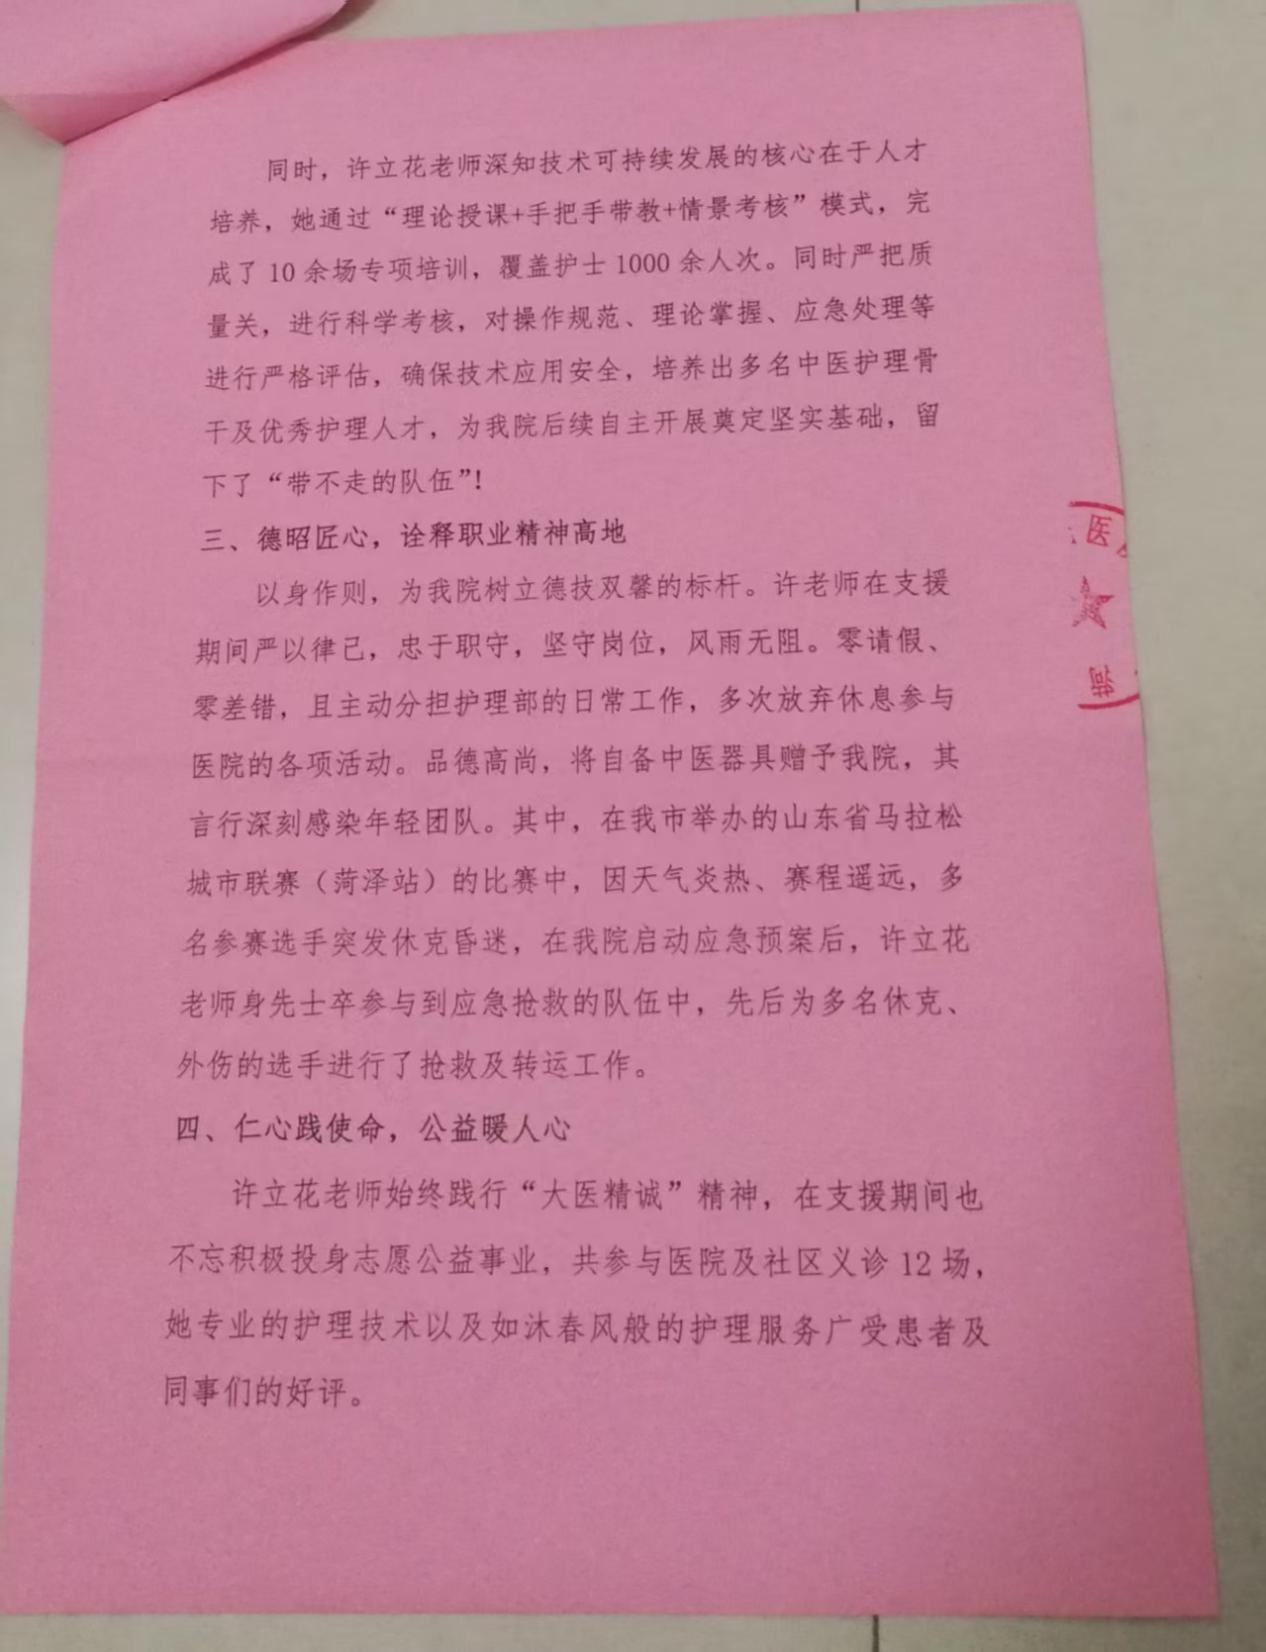 同时，许立花老师深知技术可持续发展的核心在于人才
培养，她通过“理论授课+手把手带教+情景考核”模式，完
成了 10 余场专项培训，覆盖护士 1000 余人次。同时严把质
量关，进行科学考核，对操作规范、理论掌握、应急处理等
进行严格评估，确保技术应用安全，培养出多名中医护理骨
干及优秀护理人才，为我院后续自主开展奠定坚实基础，留
下了“带不走的队伍”!
三、德昭匠心，诠释职业精神高地
以身作则，为我院树立德技双馨的标杆。许老师在支援
期间严以律己，忠于职守，坚守岗位，风雨无阻。零请假、
零差错，且主动分担护理部的日常工作，多次放弃休息参与
医院的各项活动。品德高尚，将自备中医器具赠予我院，其
言行深刻感染年轻团队。其中，在我市举办的山东省马拉松
城市联赛（菏泽站）的比赛中，因天气炎热、赛程遥远，多
名参赛选手突发休克昏迷，在我院启动应急预案后，许立花
老师身先士卒参与到应急抢救的队伍中，先后为多名休克、
外伤的选手进行了抢救及转运工作。
四、仁心践使命，公益暖人心
许立花老师始终践行“大医精诚”精神，在支援期间也
不忘积极投身志愿公益事业，共参与医院及社区义诊 12 场，
她专业的护理技术以及如沐春风般的护理服务广受患者及
同事们的好评。
医